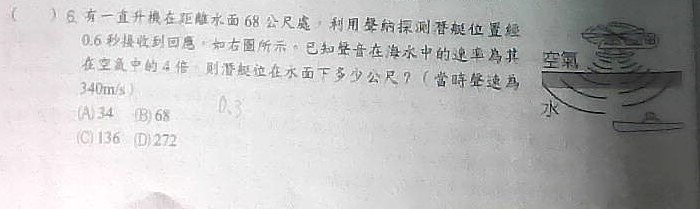 ( ) 6. 有一直升機在距離水面 68 公尺處，利用聲納探測潛艇位置經
0.6 秒接收到回應，如右圖所示。已知聲音在海水中的速率為其
在空氣中的 4 倍，則潛艇位在水面下多少公尺？（當時聲速為
340m/s）
(A) 34 (B) 68
(C) 136 (D) 272
0.3
空氣
水